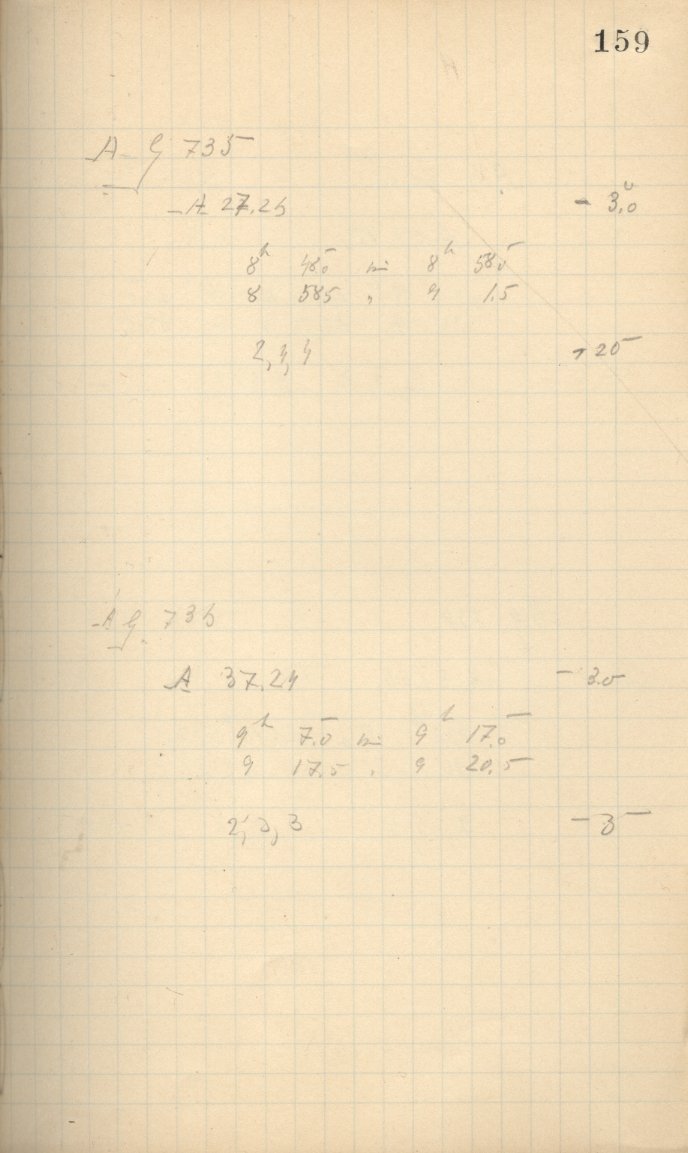 159
A G 735
A 27.25 - 3.0
8h 48.5 bis 8h 58.5
8 58.5 " 9 1.5
2, 4, 4 - 25
A G 735
A 37.24 - 3.0
9h 7.5 bis 9h 17.5
9 17.5 " 9 20.5
2, 3, 3 - 3